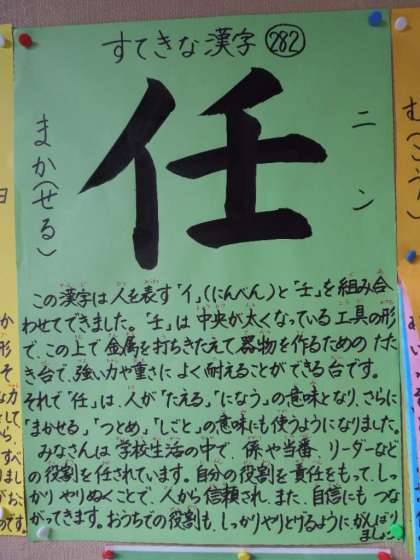 すてきな漢字 282
任
ニン
まか(せる)
この漢字は人を表す「亻」(にんべん)と「壬」を組み合
わせてできました。「壬」は中央が太くなっている工具の形
で、この上で金属を打ちきたえて器物を作るためのたた
き台で、強い力や重さによく耐えることができる台です。
それで「任」は、人が「たえる」「になう」の意味となり、さらに
「まかせる」「つとめ」「しごと」の意味にも使うようになりました。
みなさんは学校生活の中で、係や当番、リーダーなど
の役割を任されています。自分の役割を責任をもって、しっ
かりやりぬくことで、人から信頼され、また、自信にもつな
がってきます。おうちでの役割も、しっかりやりとげるようにがんばり
ましょう